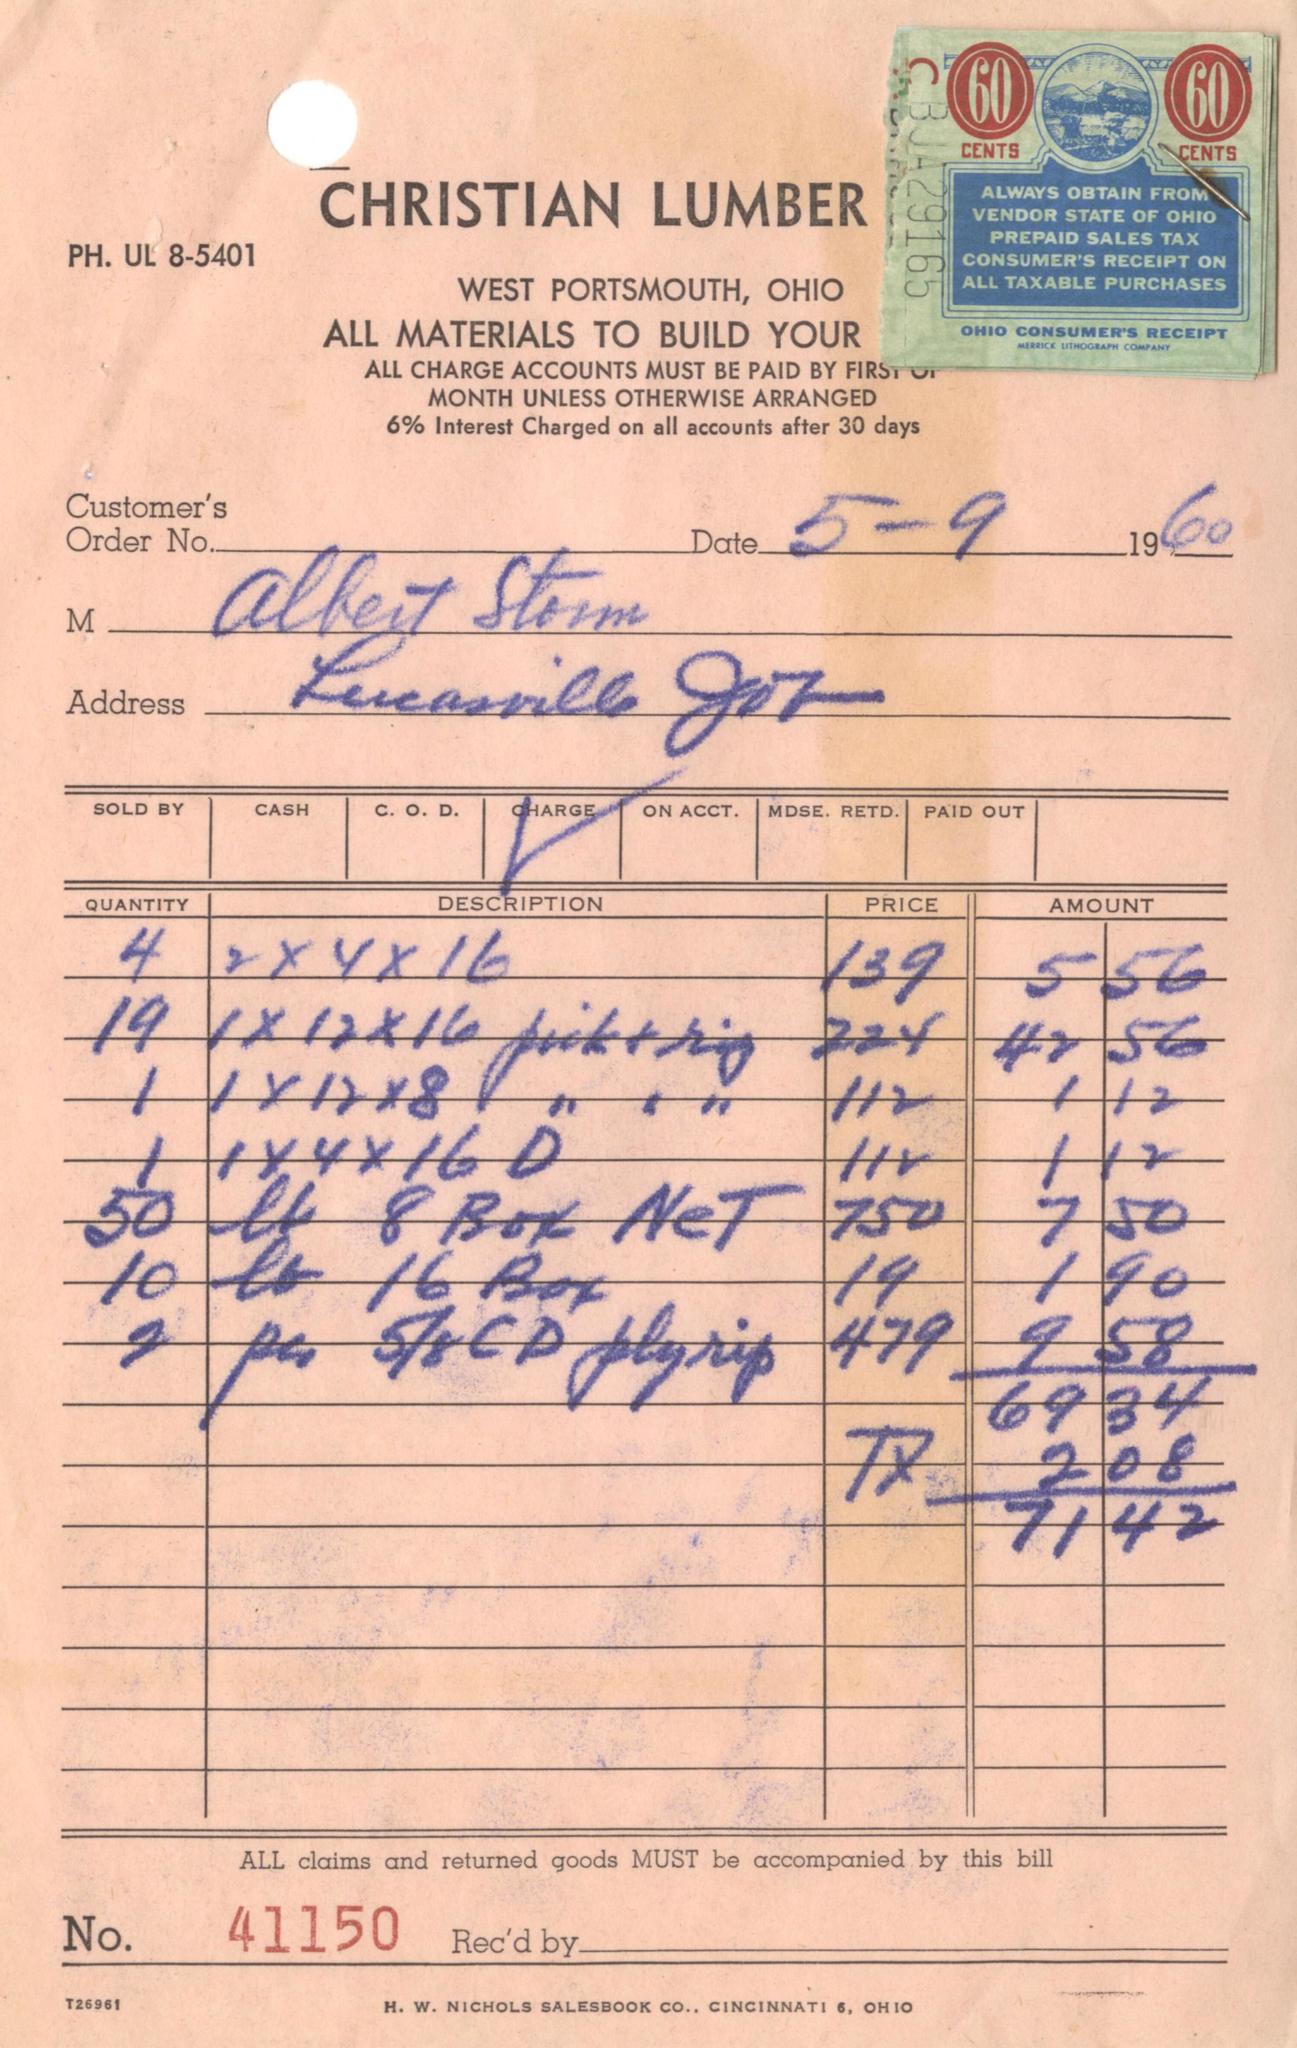 60 60
CENTS CENTS
CBJA29165
ALWAYS OBTAIN FROM
VENDOR STATE OF OHIO
PREPAID SALES TAX
CONSUMER'S RECEIPT ON
ALL TAXABLE PURCHASES
OHIO CONSUMER'S RECEIPT
MERRICK LITHOGRAPH COMPANY
CHRISTIAN LUMBER
PH. UL 8-5401
WEST PORTSMOUTH, OHIO
ALL MATERIALS TO BUILD YOUR
ALL CHARGE ACCOUNTS MUST BE PAID BY FIRST OF
MONTH UNLESS OTHERWISE ARRANGED
6% Interest Charged on all accounts after 30 days
Customer's
Order No. Date 5-9 1960
M Albert Storm
Address Lucasville Job
SOLD BY CASH C. O. D. CHARGE ON ACCT. MDSE. RETD. PAID OUT
QUANTITY DESCRIPTION PRICE AMOUNT
4 2 X 4 X 16 139 5 56
19 1 X 12 X 16 224 42 56
1 1 X 12 X 8 " " " 112 1 12
1 1 X 4 X 16 D 112 1 12
50 lb 8 Box NeT 750 7 50
10 lb 16 Box 19 1 90
2 pcs 5/8 CD plyrip 479 9 58
69 34
TX 2 08
71 42
ALL claims and returned goods MUST be accompanied by this bill
No. 41150 Rec'd by
T26961 H. W. NICHOLS SALESBOOK CO., CINCINNATI 6, OHIO